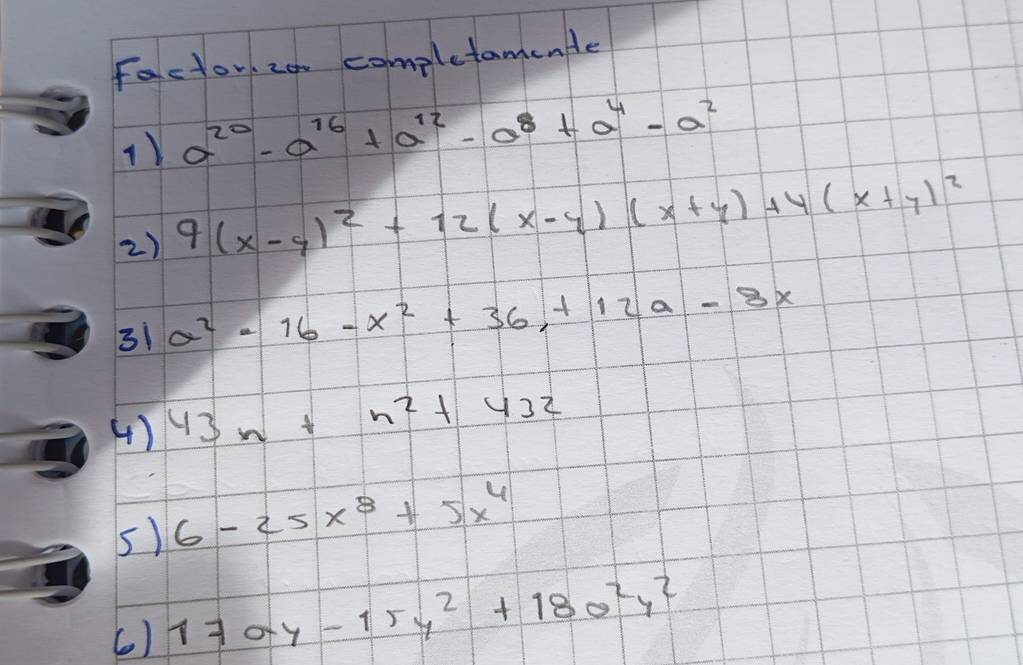 Factorizar completamente
1) a²⁰ - a¹⁶ + a¹² - a⁸ + a⁴ - a²
2) 9(x-y)² + 12(x-y)(x+y)+4(x+y)²
3) a² - 16 - x² + 36 + 12a - 8x
4) 43n + n² + 432
5) 6 - 25x⁸ + 5x⁴
6) 17ay - 15y² + 18a²y²